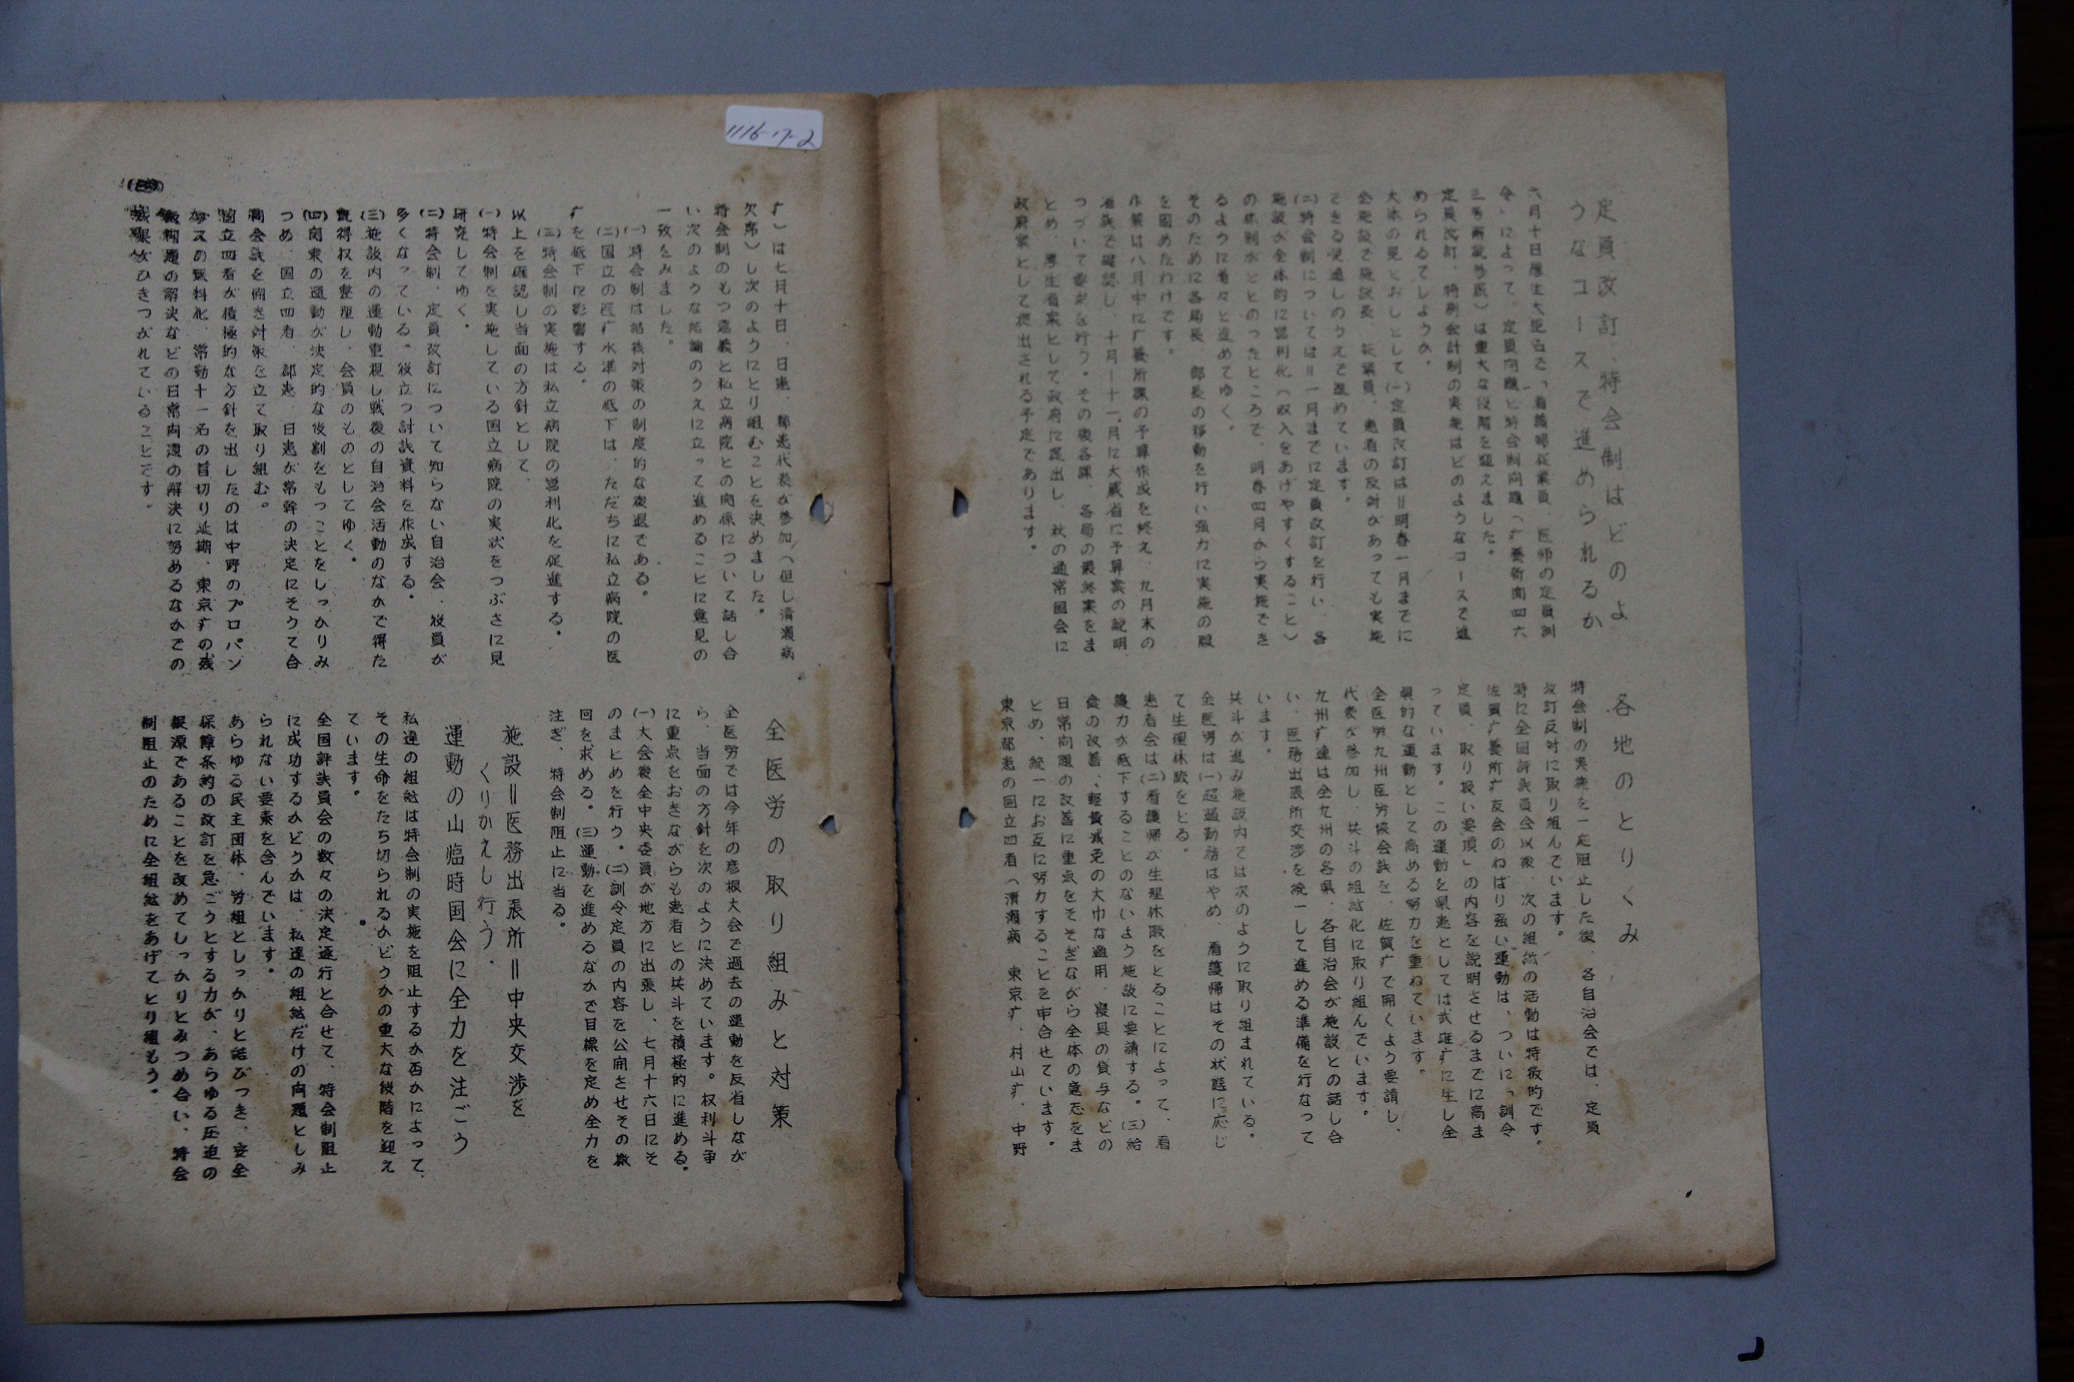 定員改訂、特会制はどのよ
うなコースで進められるか
六月十日厚生大臣名で「看護婦従業員、医師の定員訓
令」によって、定員問題と特会制問題（广養術南四六
三号病院号表）は重大な段階を迎えました。
定員改訂、特別会計制の実施はどのようなコースで進
められるでしようか。
大体の見とおしとして（一）定員改訂は＝明春一月までに
全施設で施設長、従業員、患者の反対があっても実施
できる見通しのうえで進めています。
（二）特会制については＝一月までに定員改訂を行い、各
施設が全体的に営利化（収入をあげやすくすること）
の体制がととのったところで、明春四月から実施でき
るように着々と進めてゆく。
そのために各局長、部長の移動を行い強力に実施の腹
を固めたわけです。
作業は八月中に广養所課の予算作成を終え、九月末の
省議で確認し、十月－十一月に大蔵省に予算案の説明、
つづいて要求を行う。その後各課、各局の最終案をま
とめ、厚生省案として政府に提出し、秋の通常国会に
政府案として提出される予定であります。
各地のとりくみ
特会制の実施を一応阻止した後、各自治会では、定員
改訂反対に取り組んでいます。
特に全国評議員会以後、次の組織の活動は特徴的です。
佐賀广養所广友会のねばり強い運動は、ついに「訓令
定員、取り扱い要項」の内容を説明させるまでに高ま
っています。この運動を県患としては武雄广に生し全
県的な運動として高める努力を重ねています。
全医労九州医労協会議を、佐賀广で開くよう要請し、
代表が参加し、共斗の組織化に取り組んでいます。
九州广連は全九州の各県、各自治会が施設との話し合
い、医務出張所交渉を統一して進める準備を行なって
います。
共斗が進み施設内では次のように取り組まれている。
全医労は（一）超過勤務はやめ、看護婦はその状態に応じ
て生理休暇をとる。
患者会は（二）看護婦が生理休暇をとることによって、看
護力が低下することのないよう施設に要請する。（三）給
食の改善、軽費減免の大巾な適用、寝具の貸与などの
日常問題の改善に重点をそそぎながら全体の意志をま
とめ、統一にお互に努力することを申合せています。
東京都患の国立四者（清瀬病、東京广、村山广、中野
广）は七月十日、日患、都患代表が参加（但し清瀬病
欠席）し次のようにとり組むことを決めました。
特会制のもつ意義と私立病院との関係について話し合
い次のような結論のうえに立って進めることに意見の
一致をみました。
（一）特会制は結核対策の制度的な後退である。
（二）国立の医广水準の低下は、ただちに私立病院の医
广を低下に影響する。
（三）特会制の実施は私立病院の営利化を促進する。
以上を確認し当面の方針として、
（一）特会制を実施している国立病院の実状をつぶさに見
研究してゆく。
（二）特会制、定員改訂について知らない自治会、役員が
多くなっている。役立つ討議資料を作成する。
（三）施設内の運動重視し戦後の自治会活動のなかで得た
既得权を整理し、会員のものとしてゆく。
（四）関東の運動が決定的な役割をもつことをしっかりみ
つめ、国立四者、都患、日患が常幹の決定にそって合
同会議を開き対策を立て取り組む。
国立四者が積極的な方針を出したのは中野のプロパン
ガスの無料化、常勤十一名の首切り延期、東京广の残
飯問題の解決などの日常問題の解決に努めるなかでの
成果がひきつがれていることです。
全医労の取り組みと対策
全医労では今年の彦根大会で過去の運動を反省しなが
ら、当面の方針を次のように決めています。权利斗争
に重点をおきながらも患者との共斗を積極的に進める。
（一）大会後全中央委員が地方に出張し、七月十六日にそ
のまとめを行う。（二）訓令定員の内容を公開させその撤
回を求める。（三）運動を進めるなかで目標を定め全力を
注ぎ、特会制阻止に当る。
施設＝医務出張所＝中央交渉を
くりかえし行う。
運動の山臨時国会に全力を注ごう
私達の組織は特会制の実施を阻止するか否かによって、
その生命をたち切られるかどうかの重大な段階を迎え
ています。
全国評議員会の数々の決定遂行と合せて、特会制阻止
に成功するかどうかは、私達の組織だけの問題としみ
られない要素を含んでいます。
あらゆる民主団体、労組としっかりと結びつき、安全
保障条約の改訂を急ごうとする力が、あらゆる圧迫の
根源であることを改めてしっかりとみつめ合い、特会
制阻止のために全組織をあげてとり組もう。
1116-17-2